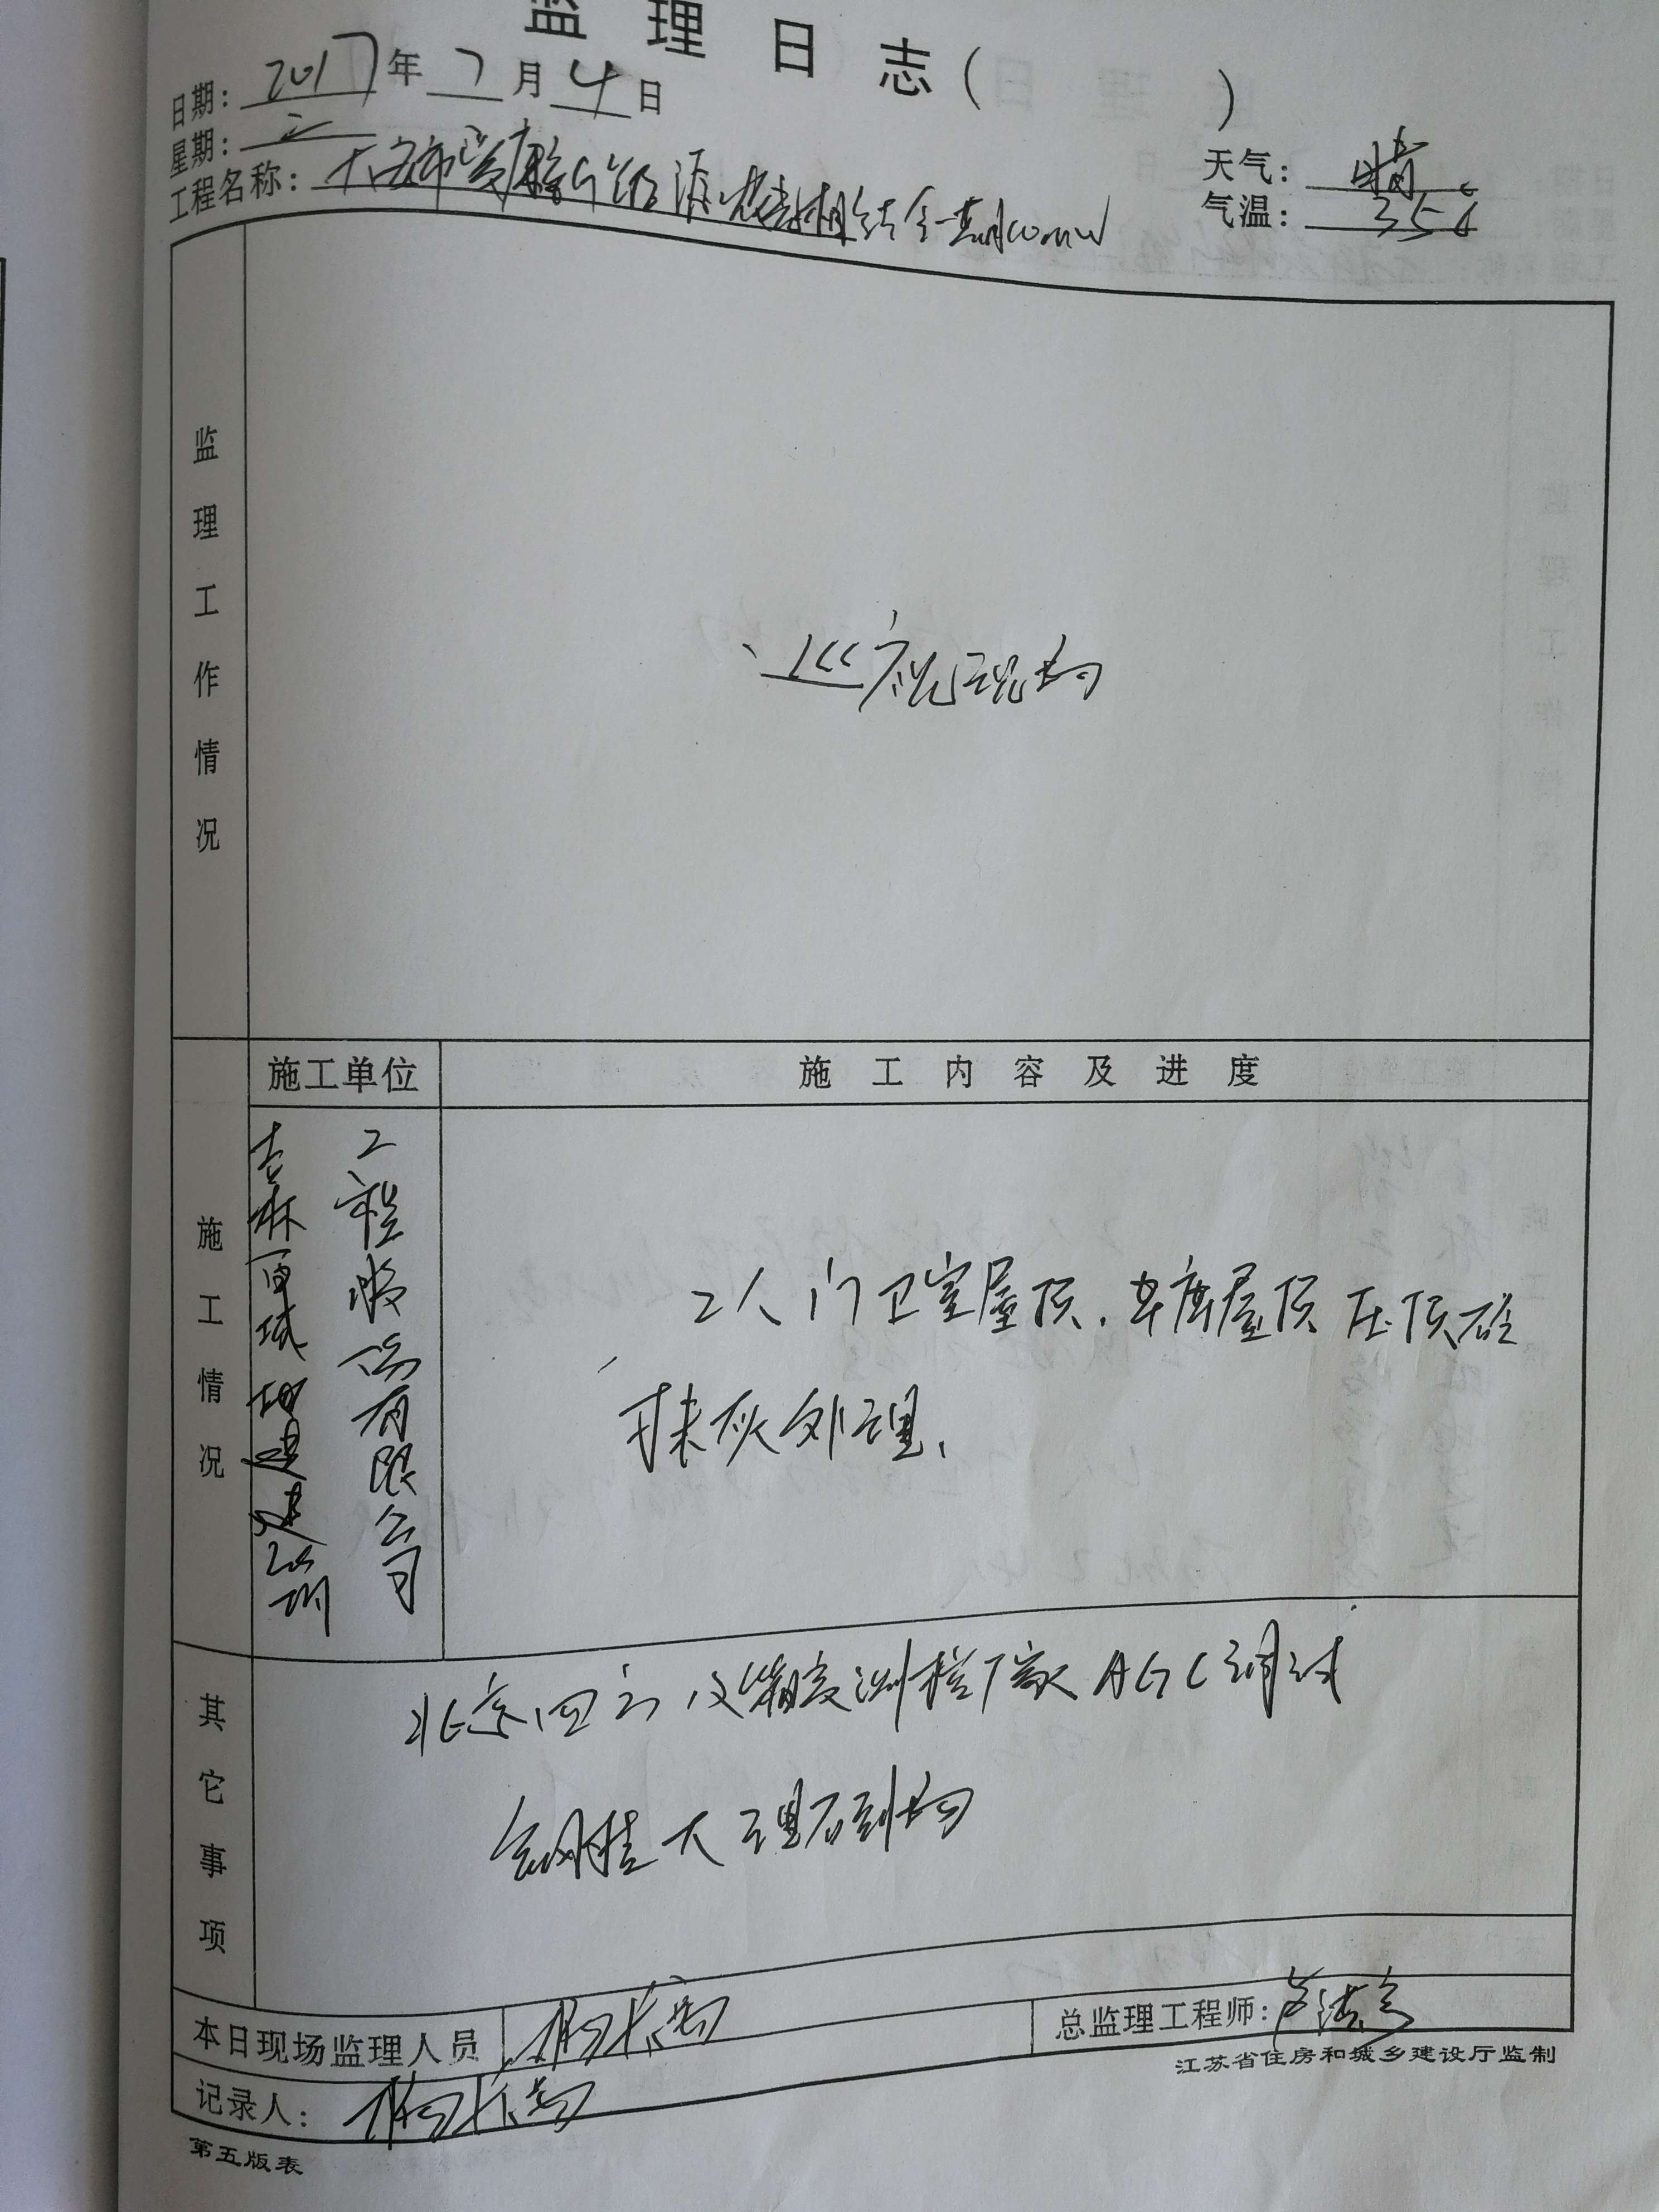 监理日志（ ）
日期：2017年7月4日
星期：二
天气：晴
气温：35℃
工程名称：大安市 相结合一期
监理工作情况
巡视现场
施工单位
施工内容及进度
施工情况
吉林 建筑
工程 有限公司
2人门卫室屋顶、车库屋顶压顶砼
抹灰处理、
其它事项
北京四方 厂家AGC调试
钢挂大理石到场
本日现场监理人员
总监理工程师：
江苏省住房和城乡建设厅监制
记录人：
第五版表